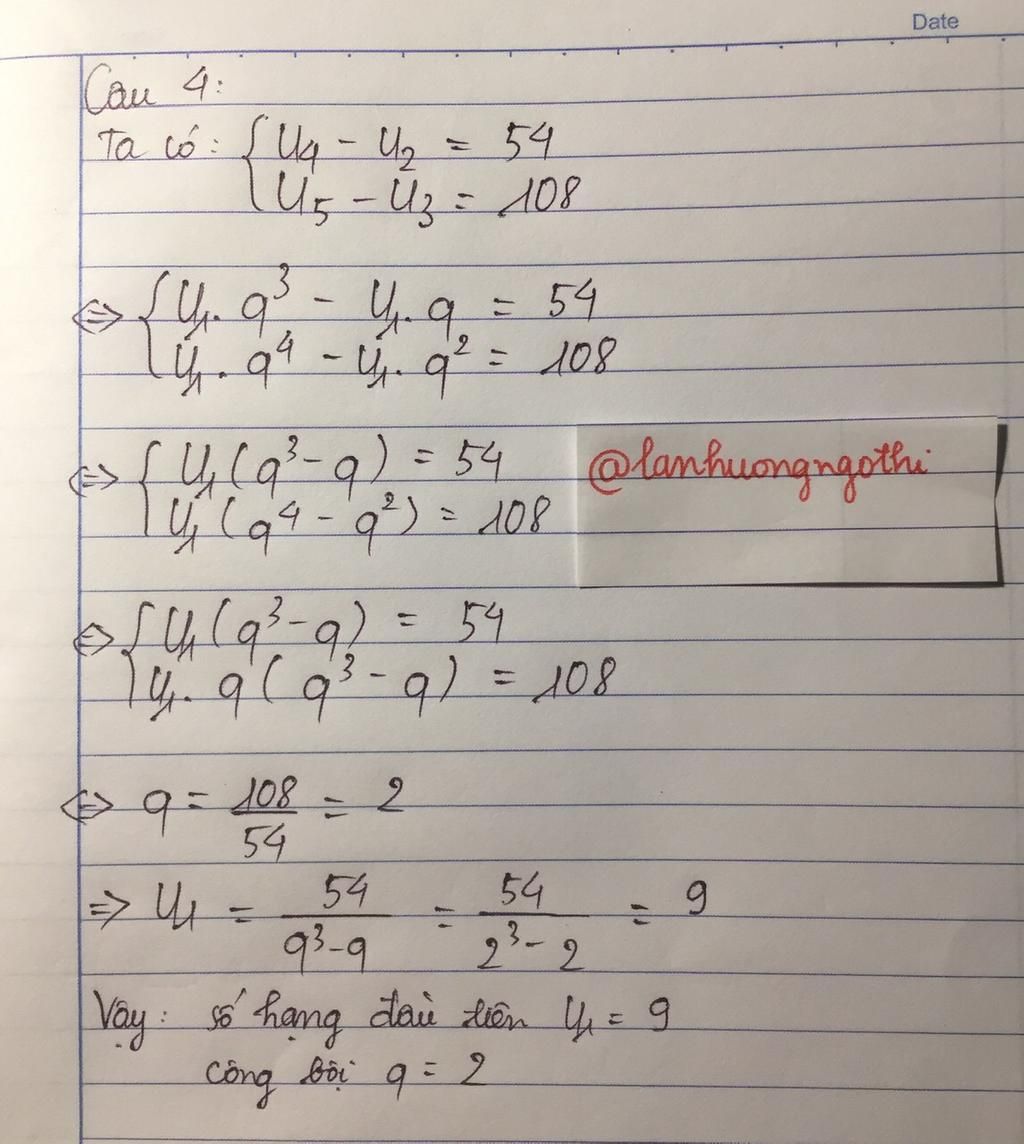 Date
Câu 4:
Ta có: { U₄ - U₂ = 54
U₅ - U₃ = 108
<=> { U₁. q³ - U₁. q = 54
U₁. q⁴ - U₁. q² = 108
<=> { U₁ (q³ - q) = 54
U₁ (q⁴ - q²) = 108
@lanhuongngothi
<=> { U₁ (q³ - q) = 54
U₁. q ( q³ - q) = 108
<=> q = 108/54 = 2
=> U₁ = 54/(q³ - q) = 54/(2³ - 2) = 9
Vậy: số hạng đầu tiên U₁ = 9
công bội q = 2